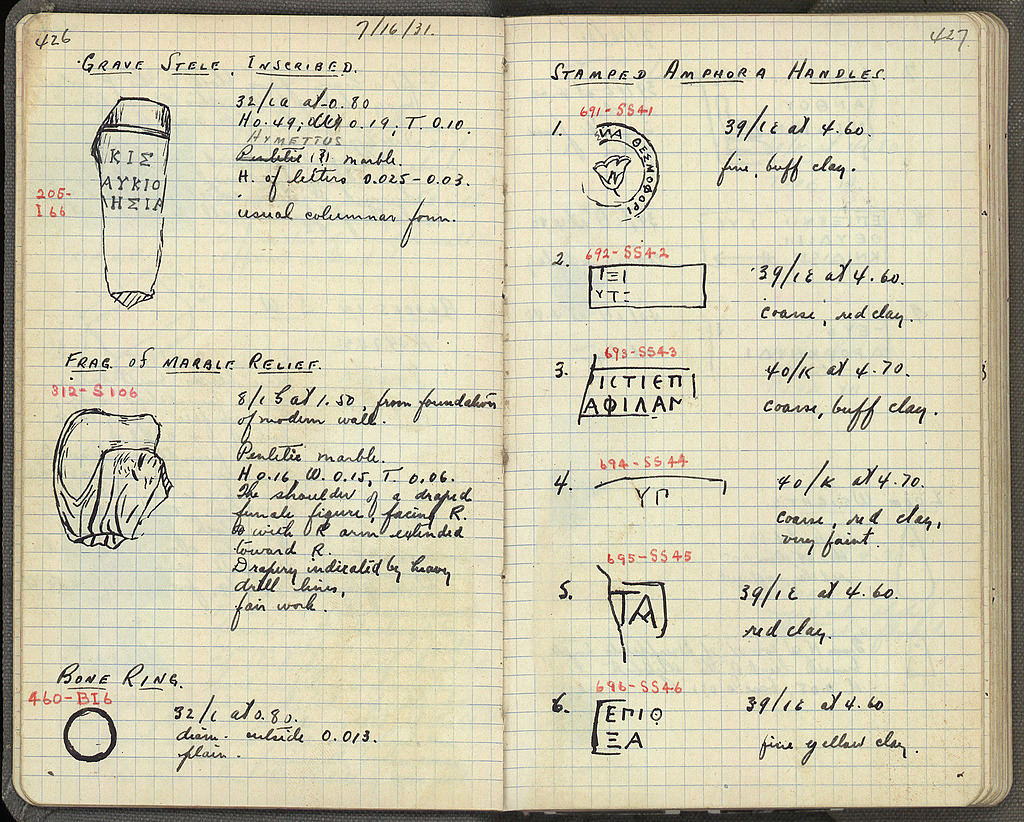 426
7/16/31.
GRAVE STELE, INSCRIBED.
ΚΙΣ
ΛΥΚΙΟ
ΛΗΣΙΑ
205-
I 66
32/ at 0.80
H 0.49; 0.19; T. 0.10.
HYMETTUS
Pentelic (?) marble.
H. of letters 0.025-0.03.
usual columnar form.
FRAG. OF MARBLE RELIEF.
312-S106
at 1.50, from foundations
of modern wall.
Pentelic marble.
H 0.16, W. 0.15, T. 0.06.
The shoulder of a draped
female figure, facing R.
with R arm extended
toward R.
Drapery indicated by heavy
drill lines,
fair work.
BONE RING.
460-BI6
32/ at 0.80.
diam. outside 0.013.
plain.
427
STAMPED AMPHORA HANDLES.
1.
691-SS41
ΘΕΣΜΟΦΟΡΙ
39/ΙΕ at 4.60.
fine, buff clay.
2.
692-SS42
ΤΞΙ
ΥΤΞ
39/ΙΕ at 4.60.
coarse, red clay.
3.
693-SS43
ΙΣΤΙΕΠ
ΑΦΙΛΑΜ
40/K at 4.70.
coarse, buff clay.
4.
694-SS44
ΥΓ
40/K at 4.70.
coarse, red clay,
very faint.
5.
695-SS45
ΤΑ
39/ΙΕ at 4.60.
red clay.
6.
696-SS46
ΕΠΙΘ
ΞΑ
39/ΙΕ at 4.60
fine yellow clay.